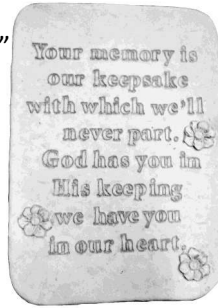 ”
Your memory is
our keepsake
with which we'll
never part.
God has you in
His keeping
we have you
in our heart.